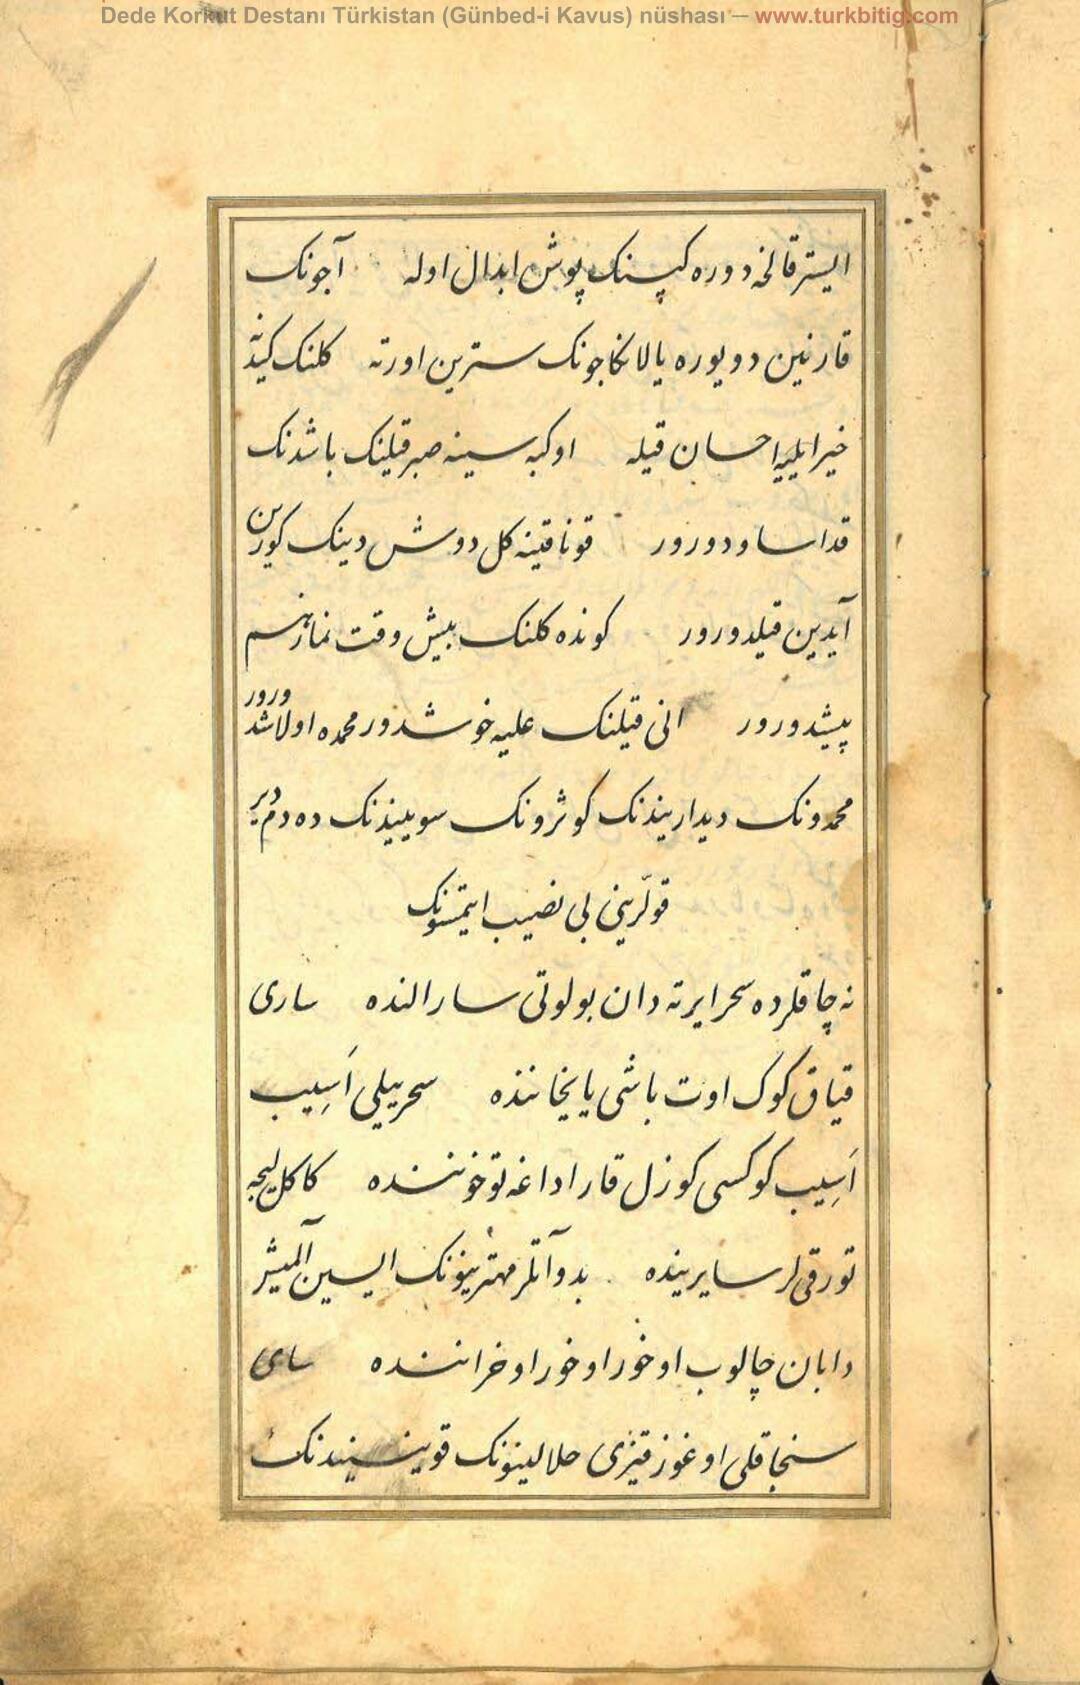 Dede Korkut Destanı Türkistan (Günbed-i Kavus) nüshası — www.turkbitig.com
ایستر قالخه دوره کپنک پوش ابدال اوله آجونک
قارنین دویوره یالانکاجونک سترین اورته کلنک کیدنه
خیر ایلیه احسان قیله اوکبه سینه صبر قیلنک باشدنک
قدا ساودورور قوناقینه کل دوش دینک کورین
آیدین قیلدورور کونده کلنک بیش وقت نماز
پیشدورور انی قیلنک علیه خوشدور محمده اولاشدورور
محمدونک دیداریندنک کوثرونک سوییندنک ده دم دیر
قوللرینی بی نصیب ایتمسونک
نه چاقلرده سحر ایرته دان بولوتی سارالنده ساری
قیاق کوک اوت باشی یایخاننده سحر ییلی اَسِیب
اَسِیب کوکسی کوزل قارا داغه توخوننده کاکللیجه
تورقیلر سایرینده بدو آتلر مهترینونک ایسین آلمیشر
دابان چالوب اوخور اوخور اوخراننده سای
سنجاقلی اوغوز قیزی حلالینونک قوینیندنک